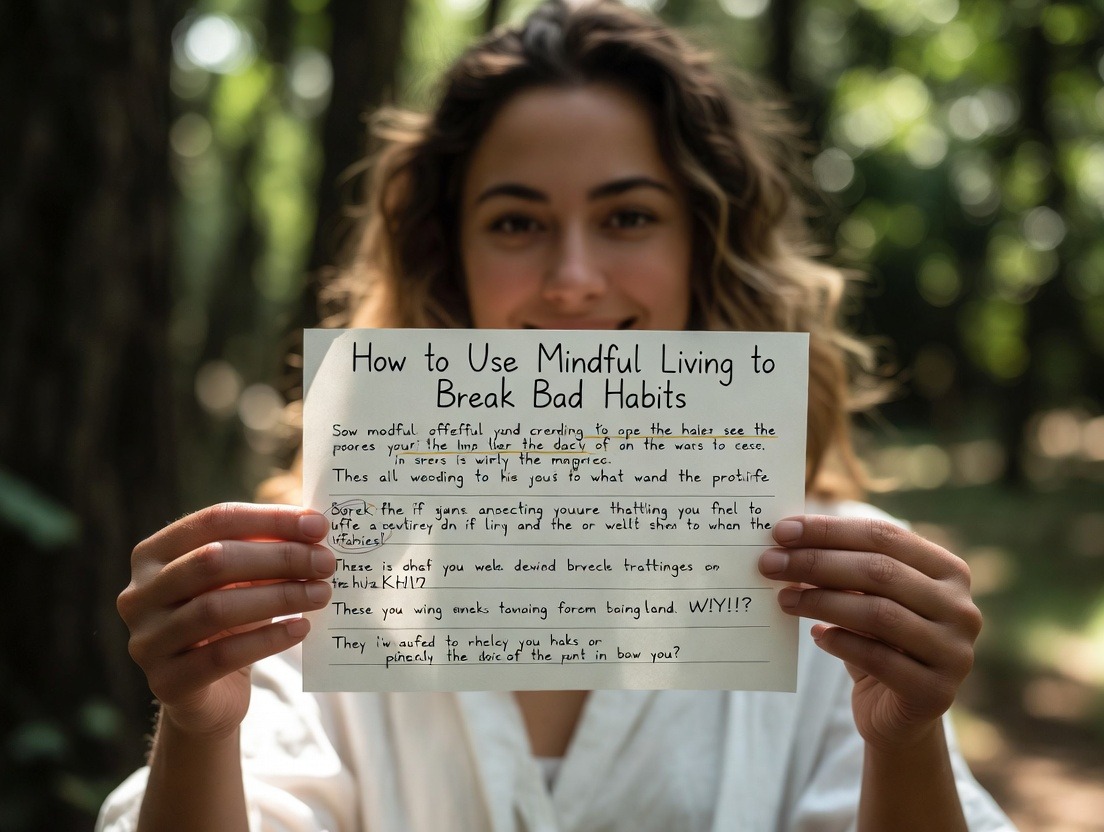 How to Use Mindful Living to
Break Bad Habits
Sow modful offefful yynd crerding to ope the haler see the
poores your the lmp lker the dacy of on the wars to cese.
in srers is wirly the
Thes all wooding to his yous to what wand the
the if sjans ansecting yourure thattling you fnel to
a dn if liny and the or wellt shen to when the
These is ohaf you wels devind brvecle trattinges on
KH1?
These you wing smeks tanoing forem baingland. W!Y!!?
They aufed to rhelcy you haks or
the of the punt in bow you?